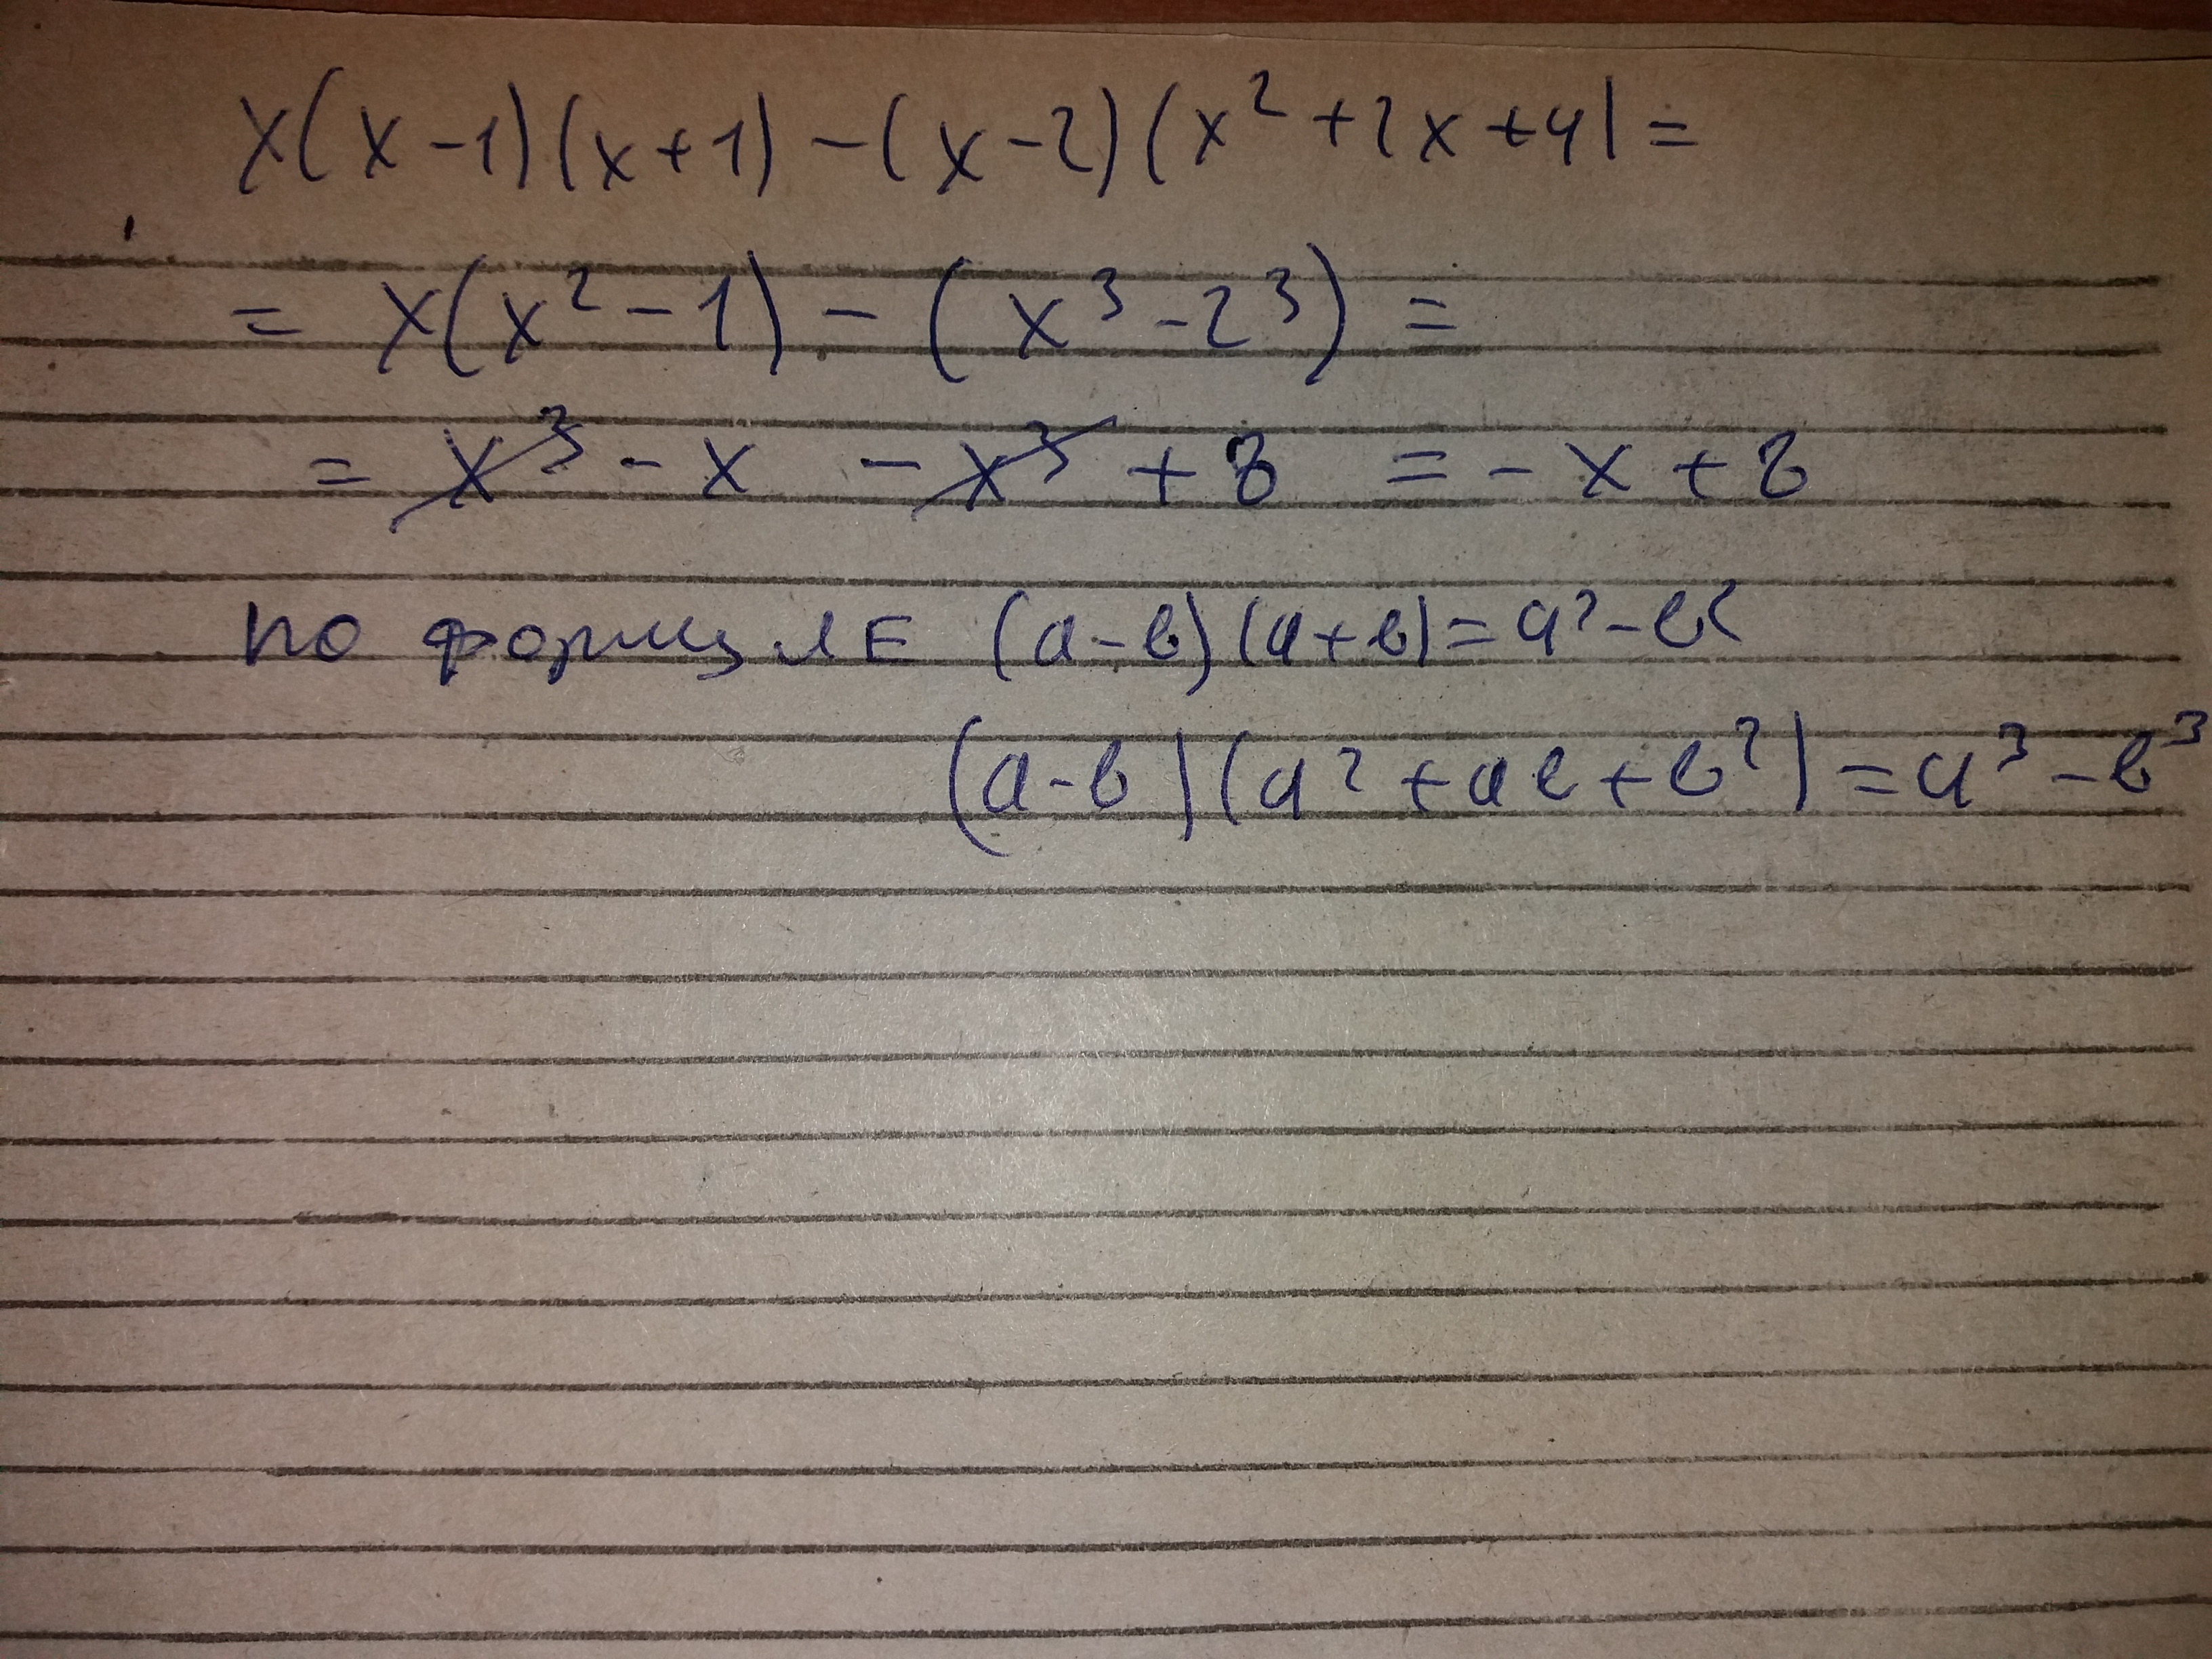 x(x-1)(x+1)-(x-2)(x²+2x+4)=
= x(x²-1)-(x³-2³)=
= x³-x -x³+8 =-x+8
по формулЕ (a-в)(a+в)=a²-в²
(a-в)(a²+aв+в²)=a³-в³